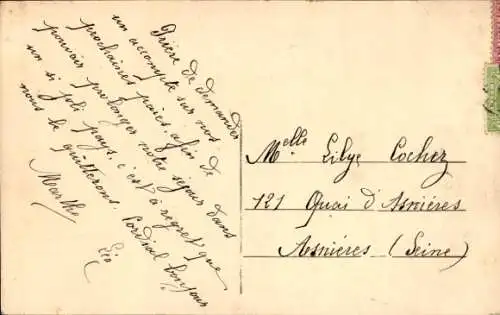 Prière de demander
un accompte sur nos
prochaines paies, afin de
pouvoir prolonger notre séjour dans
un si joli pays, c'est à regret que
nous le quitterons. Cordial bonjour
Marthe
Léo
Melle Lilye Cochez
121 Quai d'Asnières
Asnières (Seine)